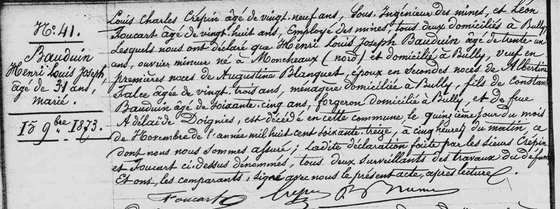 No. 41.
Bauduin
Henri Louis Joseph,
âgé de 31 ans,
marié.
15 9bre 1873.
Louis Charles Crépin âgé de vingt-neuf ans, Sous-Ingénieur des mines, et Léon
Foucart âgé de vingt-huit ans, Employé des mines, tous deux domiciliés à Bully,
Lesquels nous ont déclaré que Henri Louis Joseph Bauduin âgé de trente un
ans, ouvrier mineur né à Moncheaux (nord) et domicilié à Bully, veuf en
premières noces de Augustine Blanquet, époux en secondes noces de Albertine
âgée de vingt-trois ans, ménagère domiciliée à Bully, fils de Constant
Bauduin âgé de soixante-cinq ans, forgeron domicilié à Bully, et de feue
Adélaïde Doignies, est décédé en cette commune le quinzième jour du mois
de Novembre de l'année mil huit cent soixante-treize, à cinq heures du matin, ce
dont nous nous sommes assuré; ladite déclaration faite par les sieurs Crépin
et Foucart ci-dessus dénommés, tous deux surveillants des travaux du défunt
Et ont, les comparants, signé avec nous le présent acte, après lecture.
Foucart Crépin